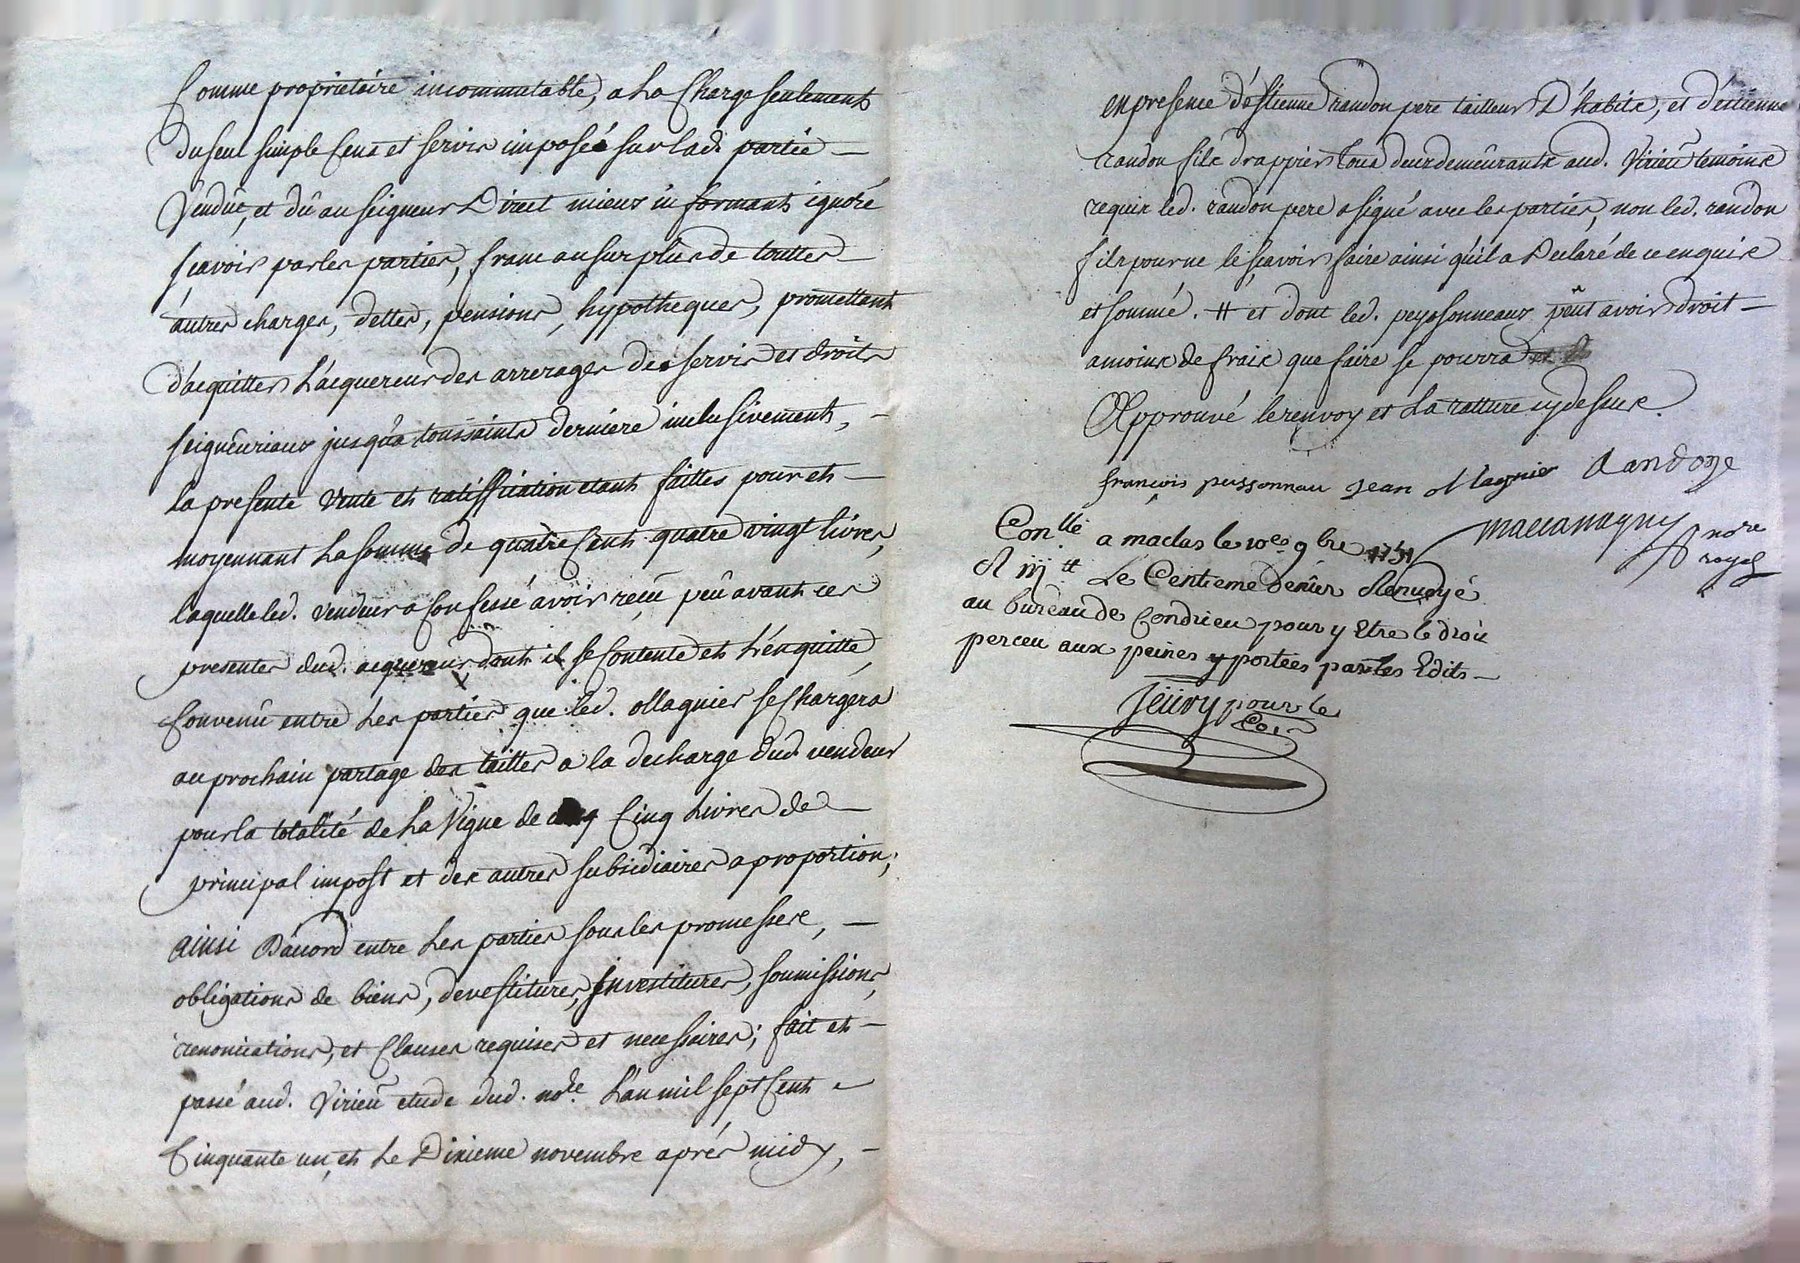 Comme proprietaire incommutable, a La Charge seulement
du seul simple Cens et servis imposé sur lad. partie
Vendue, et dû au seigneur Direct mieux informant ignoré
sçavoir par les parties, franc au surplus de touttes
autres charges, dettes, pensions, hypotheques, promettant
d'acquitter L'acquereur des arrerages des servis et droits
seigneuriaux jusqu'a toussaints derniere inclusivement,
La presente Vente et ratiffication etant faittes pour et
moyennant La somme de quatre Cent quatre vingt Livres,
laquelle led. vendeur a Confessé avoir reçu peu avant ces
presentes dud. acquereur dont il se Contente et L'en quitte,
Convenû entre Les parties que led. ollagnier se Chargera
au prochain partage des tailles a la decharge dud. vendeur
pour la totalité de La Vigne de Cinq Livres de
principal impost et des autres subsidiaires a proportion;
ainsi D'acord entre Les parties sous les promesses,
obligations de biens, devestitures, Investitures, soumissions,
renonciations, et Clauses requises et necessaires; fait et
passé aud. Virieu etude dud. nore. L'an mil sept Cent
Cinquante un, et Le Dixieme novembre après midy,
en presence d'estienne randon pere tailleur D'habits, et d'étienne
randon fils drappier tous deux demeurants aud. Virieu temoins
requis led. randon pere a signé avec les parties, non led. randon
fils pour ne le sçavoir faire ainsi qu'il a Declaré de ce enquis
et sommé. # et dont led. peyssonneaux peut avoir droit
a moins de frais que faire se pourra
Approuvé le renvoy et La ratture cy dessus.
françois peissonnau jean ollagnier Randon
Conllé a maclas le 10e 9bre 1751 nore
R iii tt Le Centieme Denier Renvoyé royal
au bureau de Condrieu pour y Etre le droit
perceu aux peines y portées par les Edits
pour le